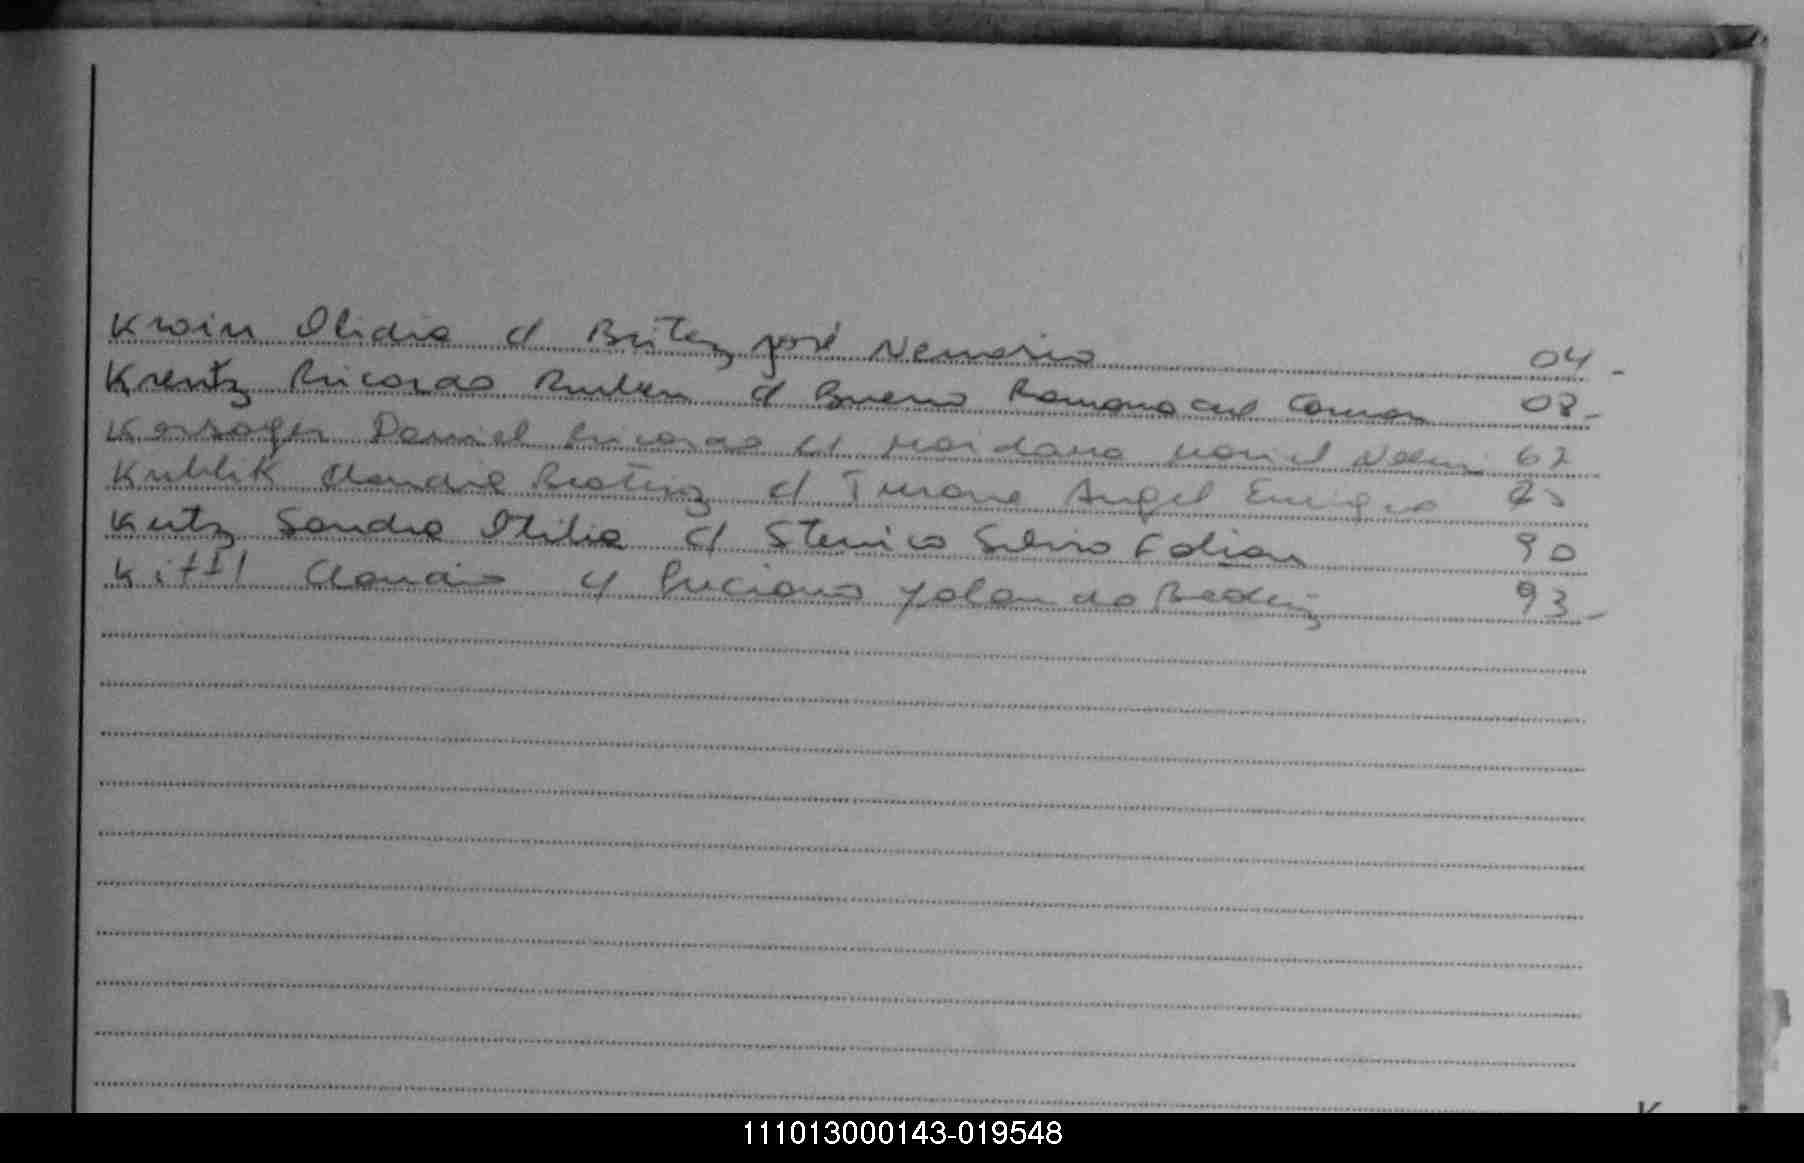 Kwin Elidia c/ Britez José Nemesio 04
Krentz Ricardo Ruben c/ Bueno Ramona del Carmen 08
Daniel Ricardo c/ Maidana Noemi 62
Kublik Claudia Beatriz c/ Turone Angel
Kutz Sandra Otilia c/ Stenico Silvio Fabian 90
Kittl Claudio c/ Luciano Yolanda Beatriz 93
K
111013000143-019548